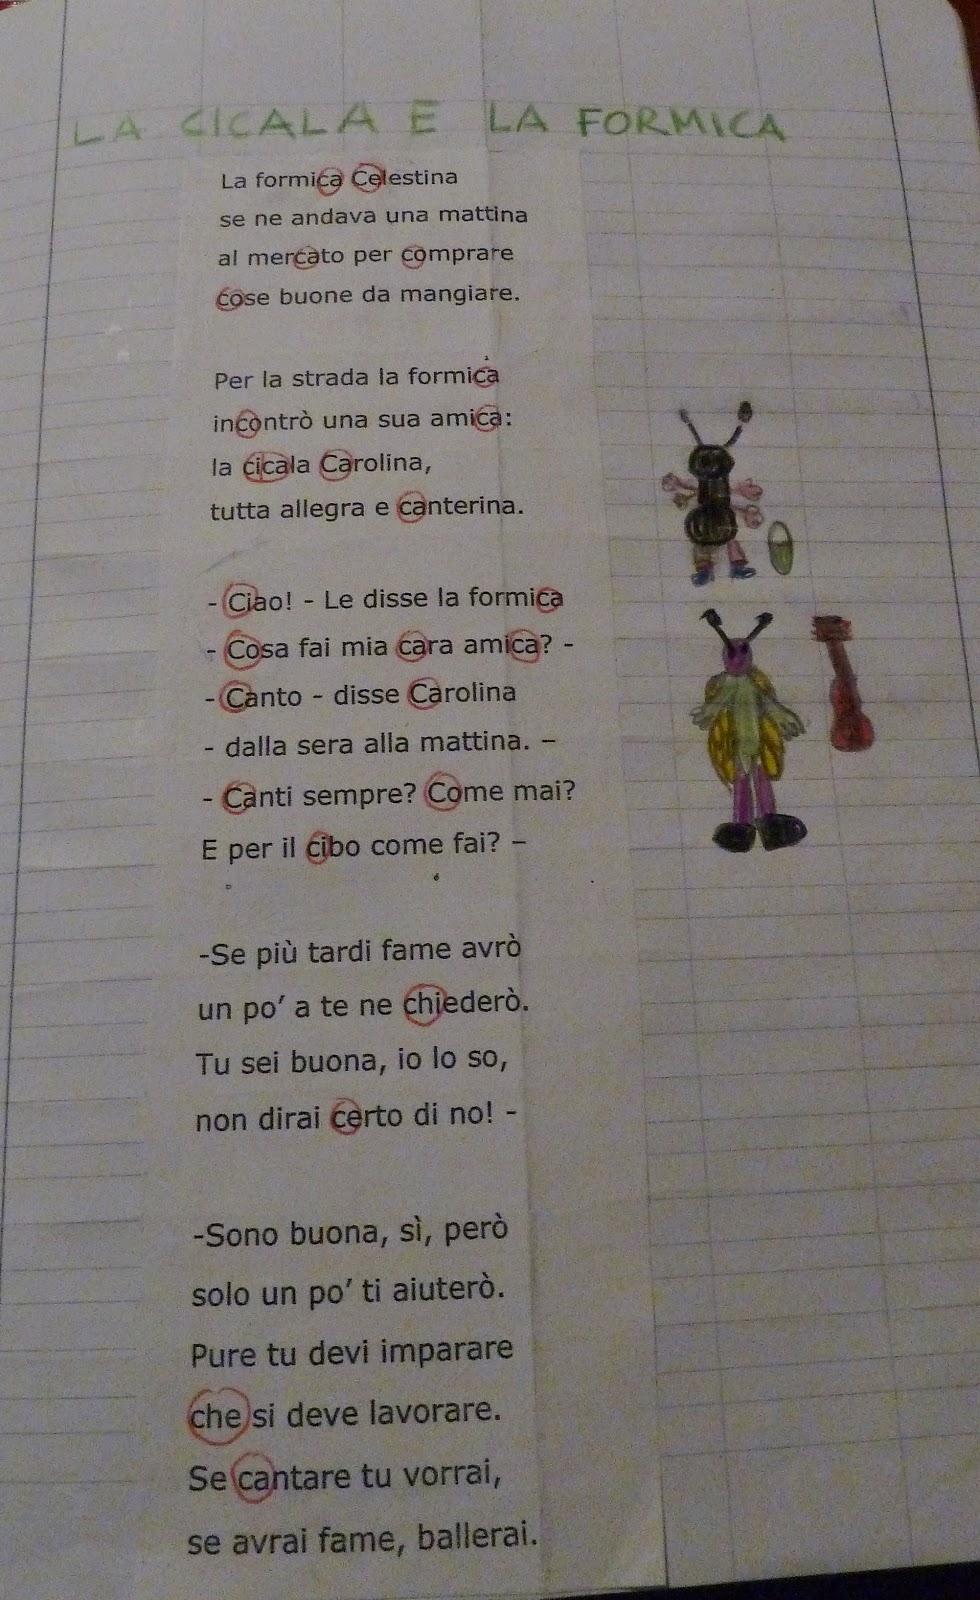 LA CICALA E LA FORMICA
La formica Celestina
se ne andava una mattina
al mercato per comprare
cose buone da mangiare.
Per la strada la formica
incontrò una sua amica:
la cicala Carolina,
tutta allegra e canterina.
- Ciao! - Le disse la formica
- Cosa fai mia cara amica? -
- Canto - disse Carolina
- dalla sera alla mattina. –
- Canti sempre? Come mai?
E per il cibo come fai? –
-Se più tardi fame avrò
un po’ a te ne chiederò.
Tu sei buona, io lo so,
non dirai certo di no! -
-Sono buona, sì, però
solo un po’ ti aiuterò.
Pure tu devi imparare
che si deve lavorare.
Se cantare tu vorrai,
se avrai fame, ballerai.